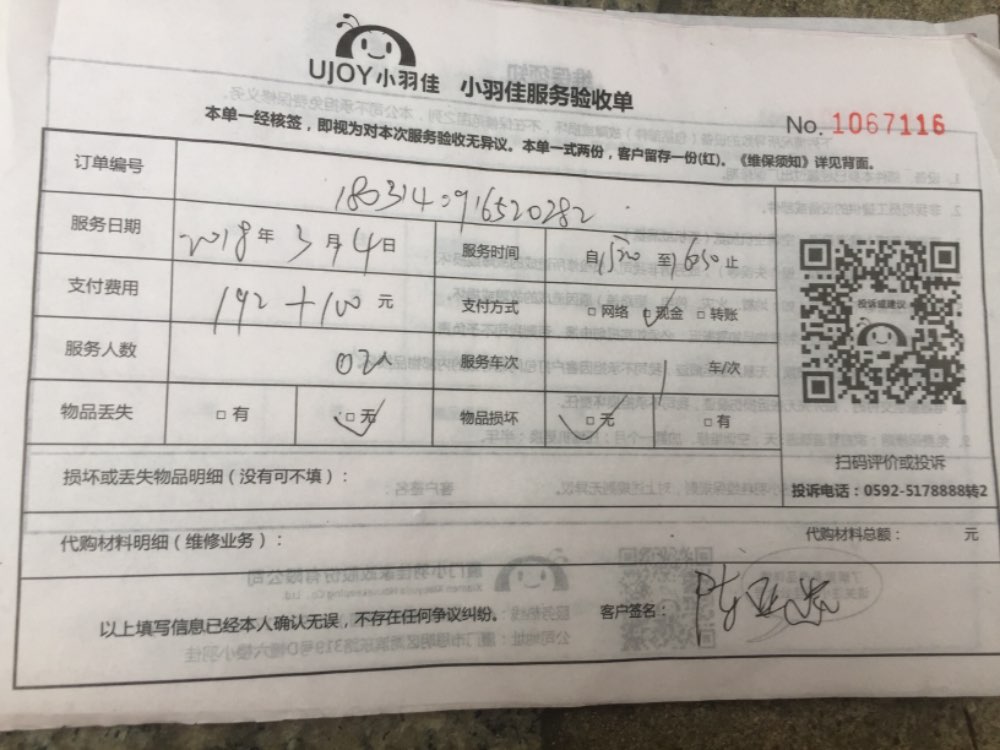 UJOY小羽佳 小羽佳服务验收单
No. 1067116
本单一经核签，即视为对本次服务验收无异议。本单一式两份，客户留存一份(红)。《维保须知》详见背面。
订单编号 180314091652028​2
服务日期 2018年3月4日 服务时间 自1520至1650止
支付费用 192+100元 支付方式 □网络 □现金 □转账
服务人数 02人 服务车次 1 车/次
物品丢失 □有 □无 物品损坏 □无 □有
投诉或建议
扫码评价或投诉
损坏或丢失物品明细（没有可不填）：
投诉电话：0592-5178888转2
代购材料明细（维修业务）： 代购材料总额： 元
以上填写信息已经本人确认无误，不存在任何争议纠纷。 客户签名：